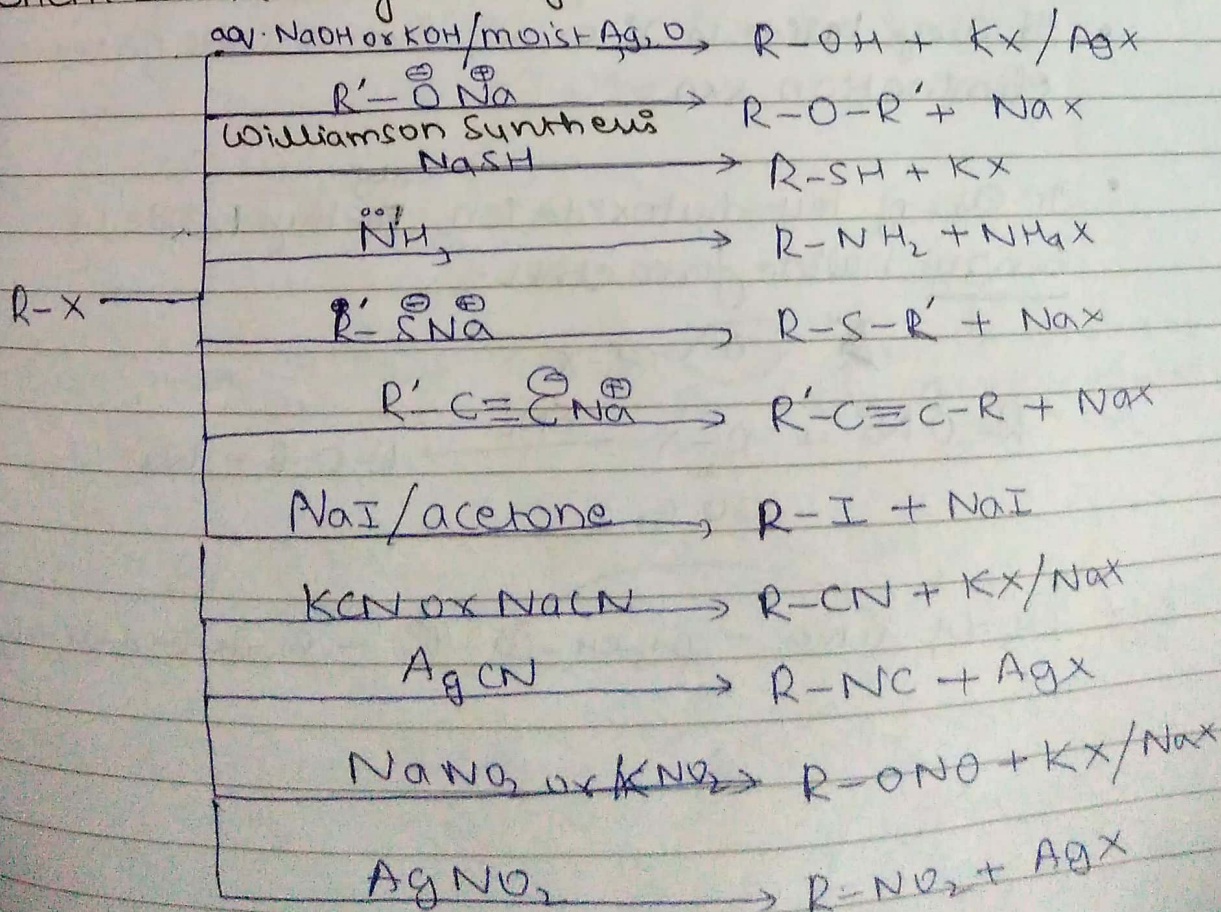 aq. NaOH or KOH/moist Ag2O → R-OH + KX/AgX
R'-O⊖Na⊕ → R-O-R' + NaX
Williamson Synthesis
NaSH → R-SH + KX
NH3 → R-NH2 + NH4X
R-X
R'-S⊖Na⊕ → R-S-R' + NaX
R'-C≡C⊖Na⊕ → R'-C≡C-R + NaX
NaI/acetone → R-I + NaI
KCN or NaCN → R-CN + KX/NaX
AgCN → R-NC + AgX
NaNO2 or KNO2 → R-ONO + KX/NaX
AgNO2 → R-NO2 + AgX